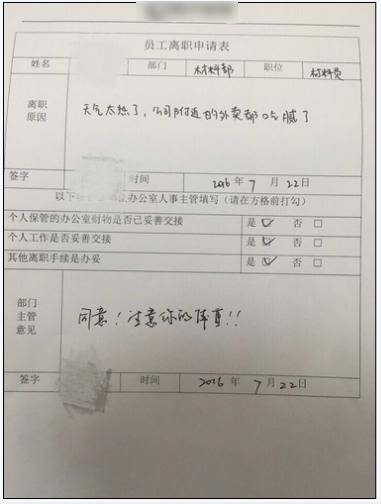 员工离职申请表
姓名 部门 材料部 职位 材料员
离职原因 天气太热了，公司附近的外卖都吃腻了
签字 时间 2016年7月22日
以下 办公室人事主管填写（请在方格前打勾）
个人保管的办公室财物是否已妥善交接 是☑ 否☐
个人工作是否妥善交接 是☑ 否☐
其他离职手续是办妥 是☑ 否☐
部门主管意见 同意！注意你的体重！！
签字 时间 2016年7月22日